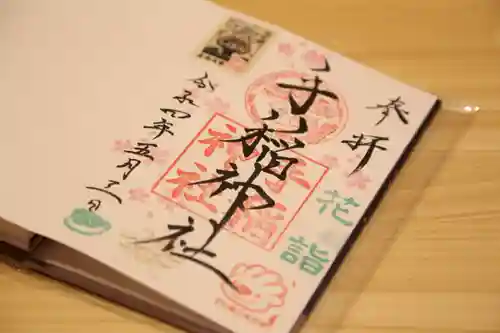 参拝
花詣
手稲神社
手稲
神社
令和四年五月三日